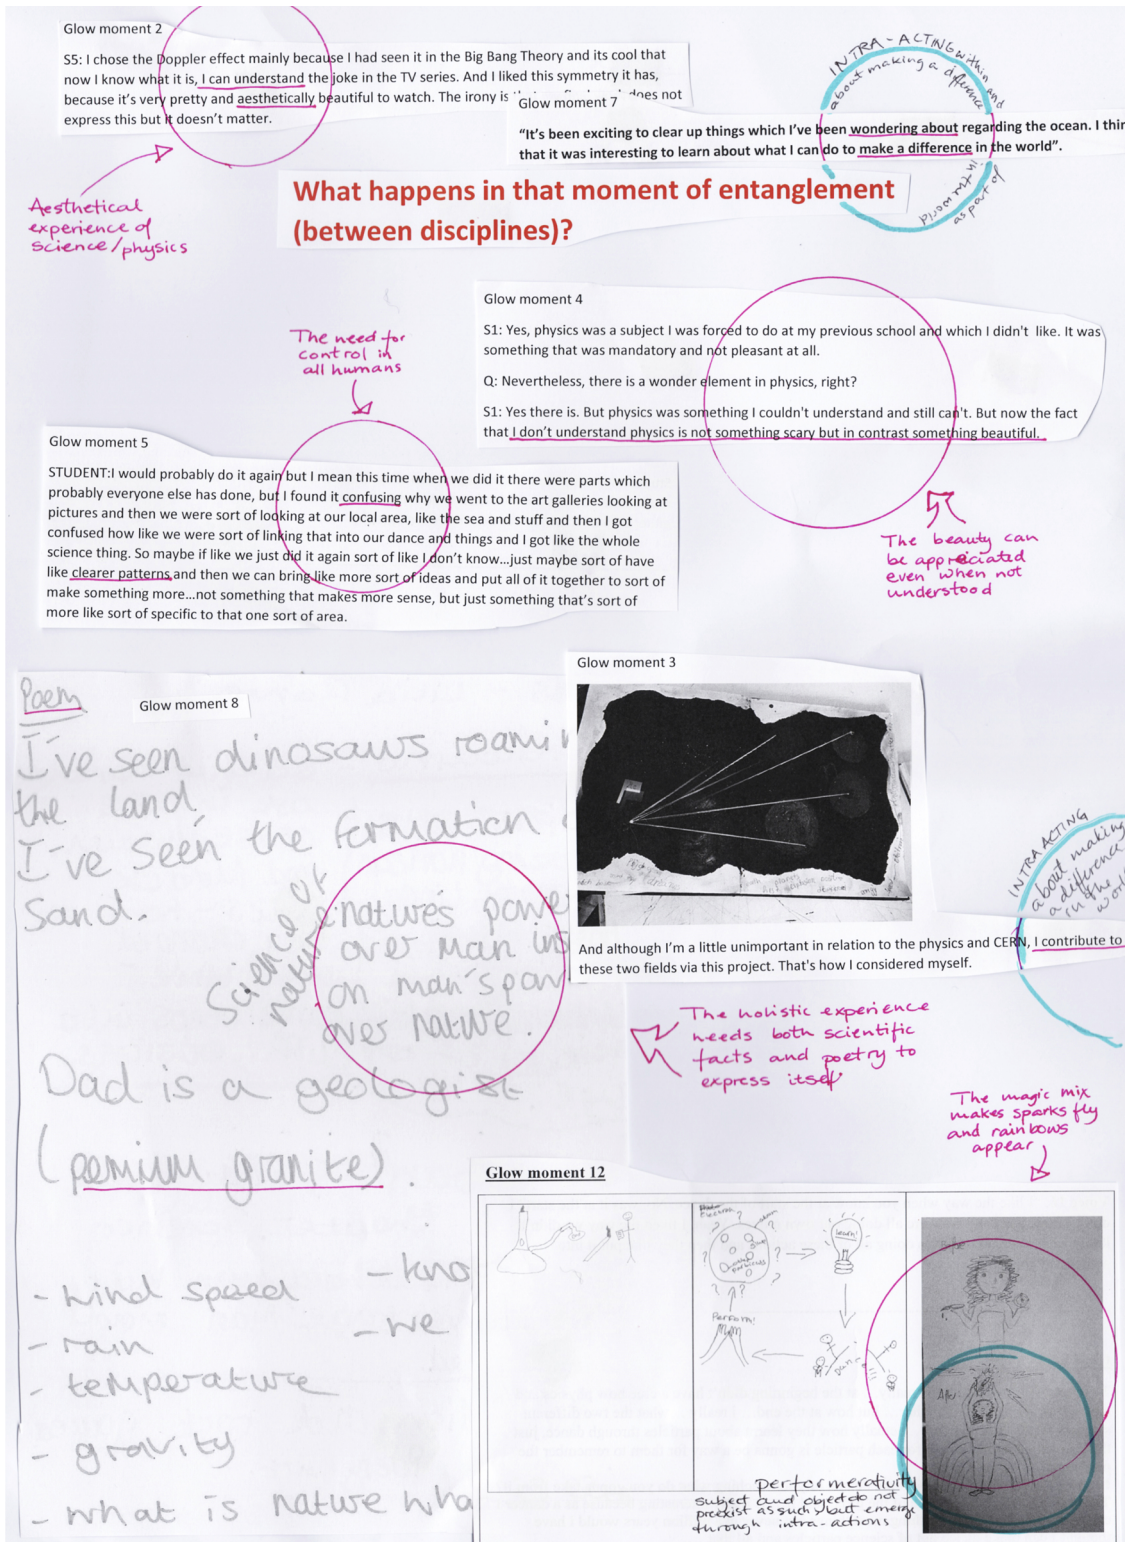 Glow moment 2
S5: I chose the Doppler effect mainly because I had seen it in the Big Bang Theory and its cool that
now I know what it is, I can understand the joke in the TV series. And I liked this symmetry it has,
because it's very pretty and aesthetically beautiful to watch. The irony is does not
express this but it doesn't matter.
INTRA-ACTING within and
about making a difference
in the world
as part of
Glow moment 7
"It's been exciting to clear up things which I've been wondering about regarding the ocean. I thin
that it was interesting to learn about what I can do to make a difference in the world".
Aesthetical
experience of
science/physics
What happens in that moment of entanglement
(between disciplines)?
Glow moment 4
S1: Yes, physics was a subject I was forced to do at my previous school and which I didn't like. It was
something that was mandatory and not pleasant at all.
Q: Nevertheless, there is a wonder element in physics, right?
S1: Yes there is. But physics was something I couldn't understand and still can't. But now the fact
that I don't understand physics is not something scary but in contrast something beautiful.
The need for
control in
all humans
Glow moment 5
STUDENT:I would probably do it again but I mean this time when we did it there were parts which
probably everyone else has done, but I found it confusing why we went to the art galleries looking at
pictures and then we were sort of looking at our local area, like the sea and stuff and then I got
confused how like we were sort of linking that into our dance and things and I got like the whole
science thing. So maybe if like we just did it again sort of like I don't know...just maybe sort of have
like clearer patterns and then we can bring like more sort of ideas and put all of it together to sort of
make something more...not something that makes more sense, but just something that's sort of
more like sort of specific to that one sort of area.
The beauty can
be appreciated
even when not
understood
Glow moment 3
Poem
Glow moment 8
I've seen dinosaws roamin
the land,
I've seen the formation
Sand.
Science of
nature
natures powe
over man ins
on man's pow
over nature.
Dad is a geologist
(pemium granite).
- wind speed
- rain
- temperature
- gravity
- what is nature wha
- kno
- we
INTRA ACTING
about making
a difference
in the
worl
And although I'm a little unimportant in relation to the physics and CERN, I contribute to
these two fields via this project. That's how I considered myself.
The holistic experience
needs both scientific
facts and poetry to
express itself
The magic mix
makes sparks fly
and rainbows
appear
Glow moment 12
learn!
Perform!
Dance!!!
Before
After
performerativity
subject and object do not
preexist as such, but emerge
through intra-actions